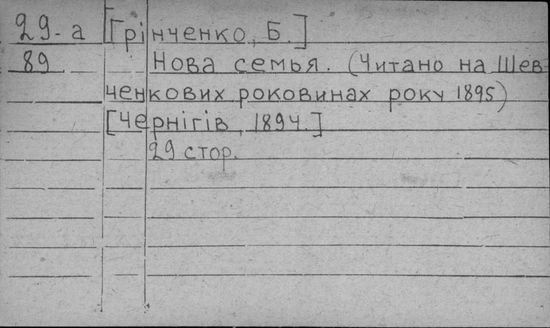 29-а [Грінченко, Б.]
89 Нова семья. (Читано на Шев
ченкових роковинах року 1895)
[Чернігів, 1894.]
29 стор.